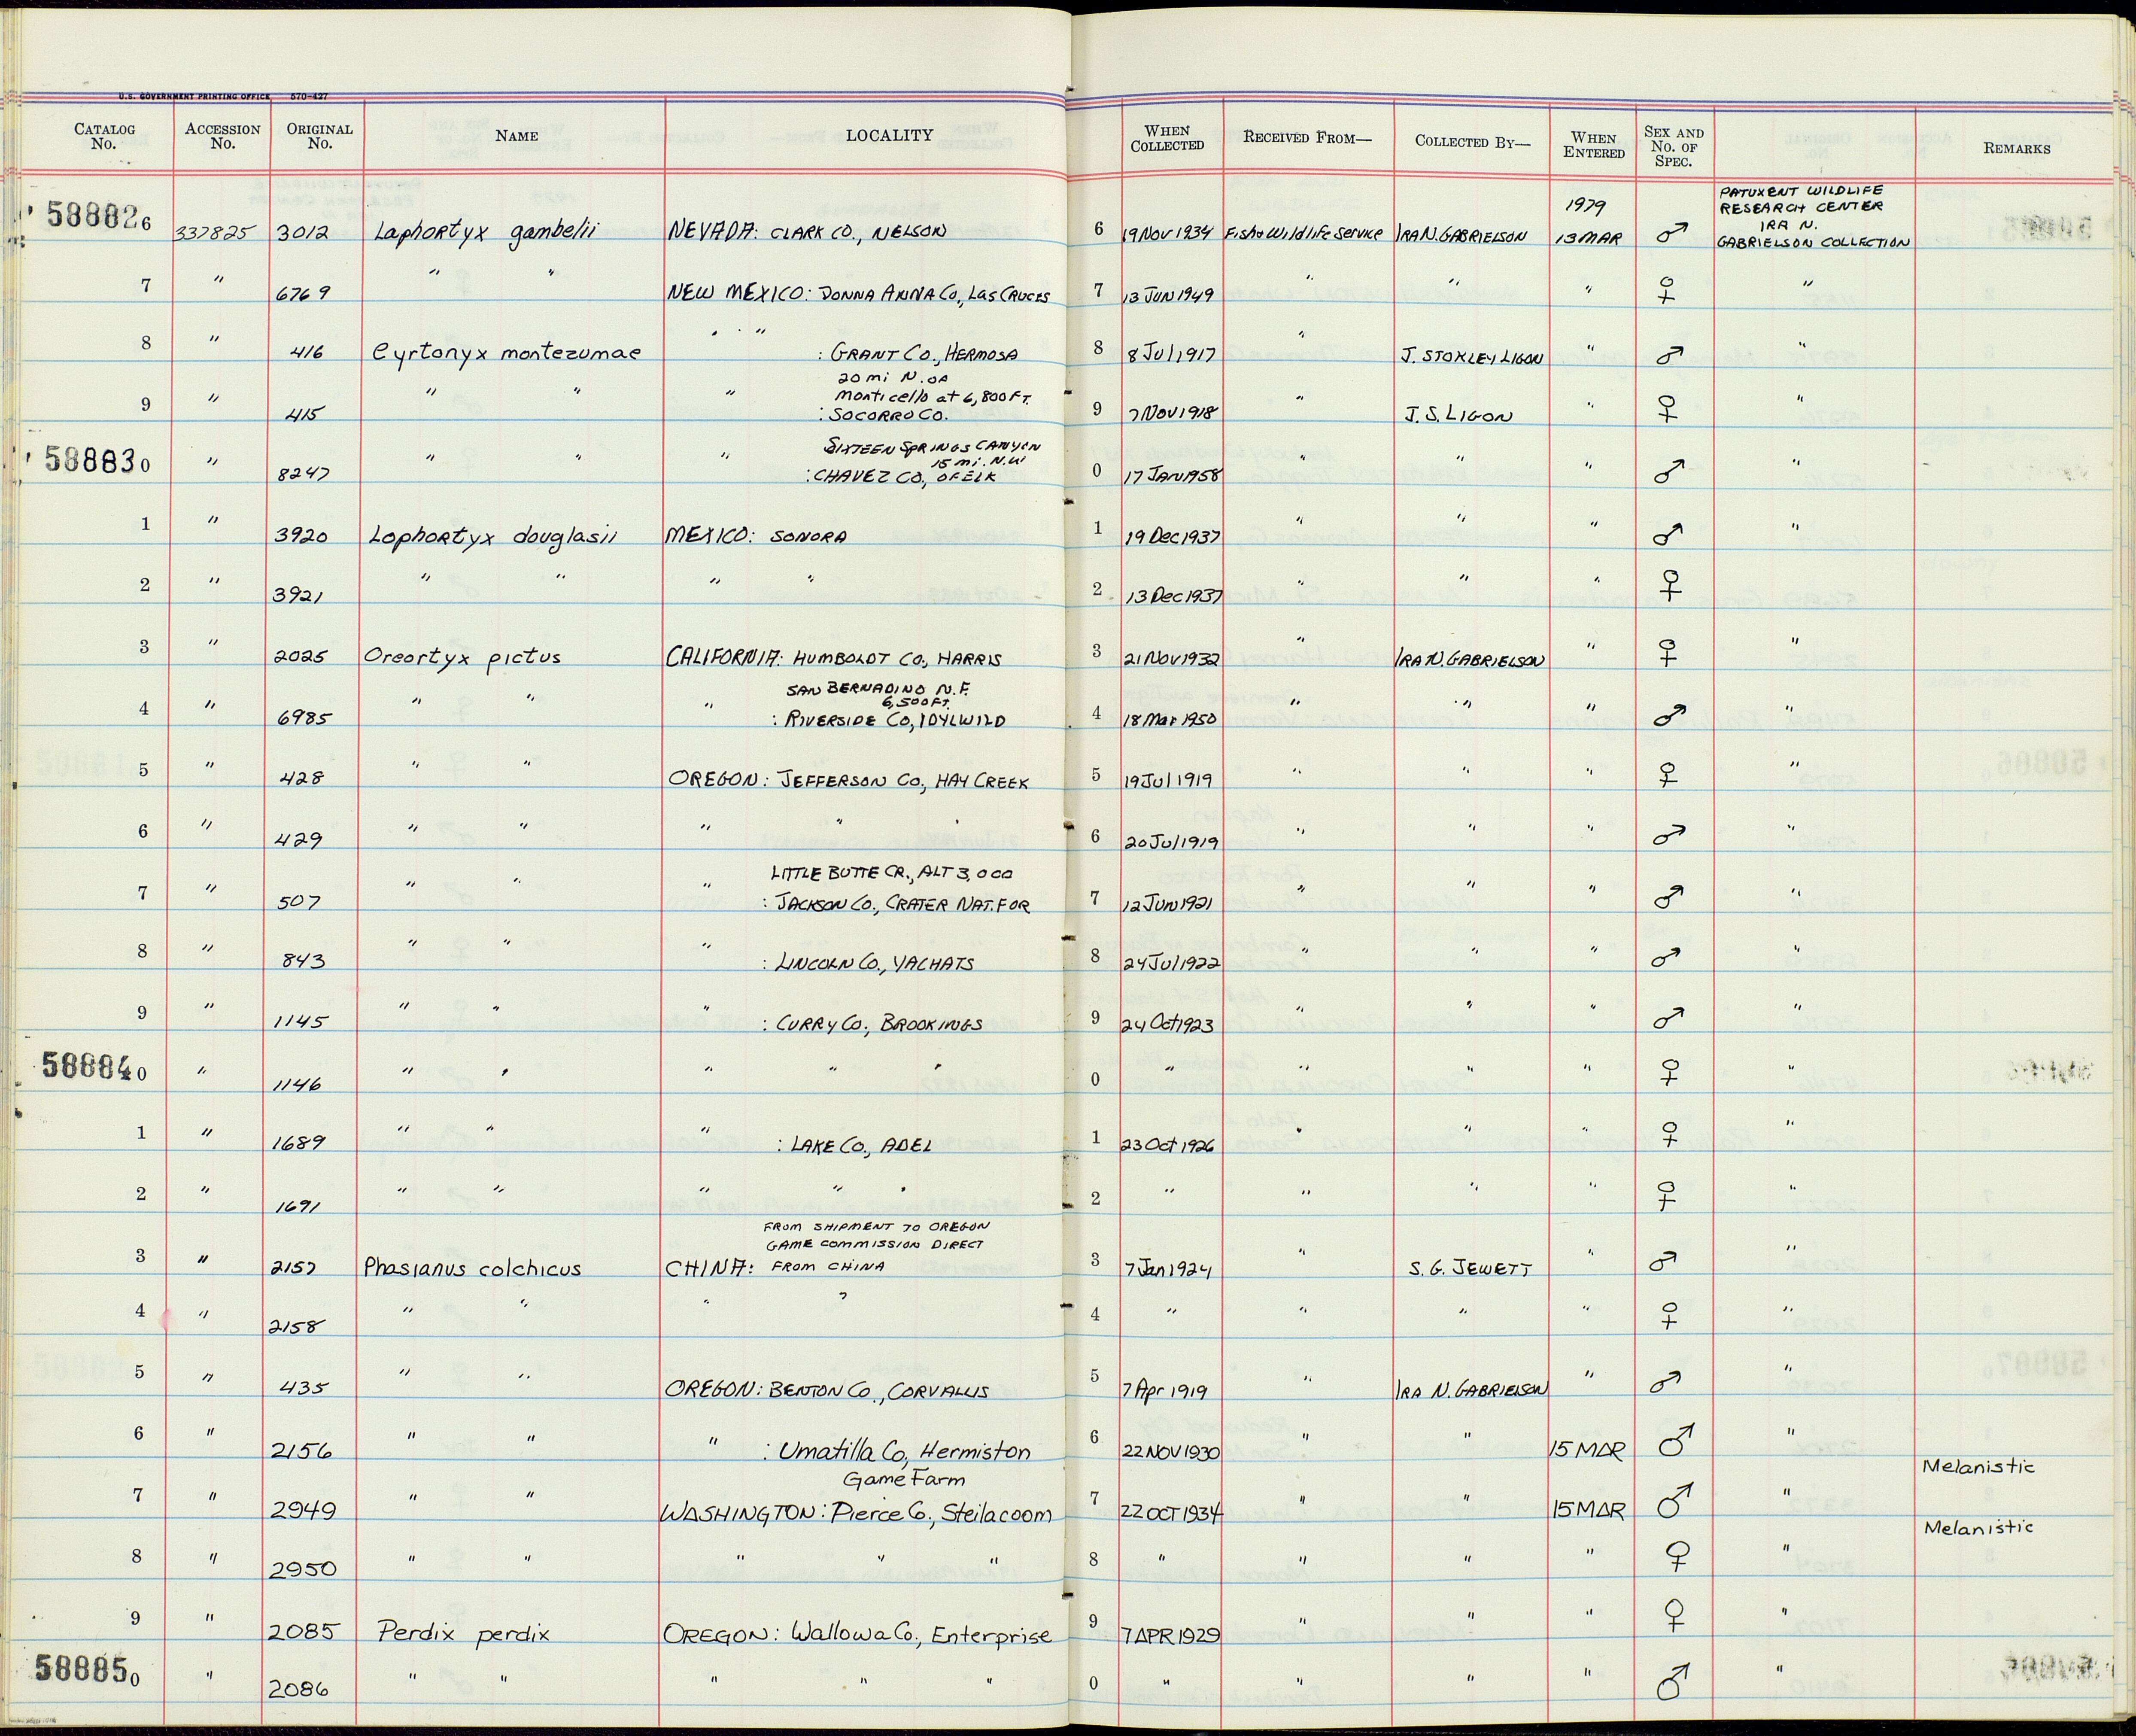 U.S. GOVERNMENT PRINTING OFFICE 570-427
CATALOG No. ACCESSION No. ORIGINAL No. NAME LOCALITY WHEN COLLECTED RECEIVED FROM— COLLECTED BY— WHEN ENTERED SEX AND No. OF SPEC. REMARKS
PATUXENT WILDLIFE
1979 RESEARCH CENTER
IRA N.
588826 337825 3012 Lophortyx gambelii NEVADA: CLARK CO., NELSON 6 19 NOV 1934 Fish & Wildlife Service IRA N. GABRIELSON 13 MAR ♂ GABRIELSON COLLECTION
7 " 6769 " " NEW MEXICO: DONNA ANNA CO., LAS CRUCES 7 13 JUN 1949 " " " ♀ "
8 " 416 Cyrtonyx montezumae " " : GRANT CO., HERMOSA 8 8 Jul 1917 " J. STOKLEY LIGON " ♂ "
20 mi N. OF
Monticello at 6,800 FT.
9 " 415 " " " : SOCORRO CO. 9 7 NOV 1918 " J. S. LIGON " ♀ "
SIXTEEN SPRINGS CANYON
15 mi. N.W
588830 " 8247 " " " : CHAVEZ CO., OF ELK 0 17 JAN 1958 " " " ♂ "
1 " 3920 Lophortyx douglasii MEXICO: SONORA 1 19 Dec 1937 " " " ♂ "
2 " 3921 " " " " 2 13 Dec 1937 " " " ♀
3 " 2025 Oreortyx pictus CALIFORNIA: HUMBOLDT CO., HARRIS 3 21 NOV 1932 " IRA N. GABRIELSON " ♀ "
SAN BERNADINO N.F.
6,500 FT.
4 " 6985 " " " : RIVERSIDE CO, IDYLWILD 4 18 Mar 1950 " " " ♂ "
5 " 428 " " OREGON: JEFFERSON CO., HAY CREEK 5 19 Jul 1919 " " " ♀ "
6 " 429 " " " " " 6 20 Jul 1919 " " " ♂ "
LITTLE BUTTE CR., ALT 3,000
7 " 507 " " " : JACKSON CO., CRATER NAT. FOR 7 12 JUN 1921 " " " ♂ "
8 " 843 " " " : LINCOLN CO., YACHATS 8 24 Jul 1922 " " " ♂ "
9 " 1145 " " " : CURRY CO., BROOKINGS 9 24 Oct 1923 " " " ♂ "
588840 " 1146 " " " " " 0 " " " " ♀ "
1 " 1689 " " " : LAKE CO., ADEL 1 23 Oct 1926 " " " ♀ "
2 " 1691 " " " " " 2 " " " " ♀ "
FROM SHIPMENT TO OREGON
GAME COMMISSION DIRECT
3 " 2157 Phasianus colchicus CHINA: FROM CHINA 3 7 Jan 1924 " S. G. JEWETT " ♂ "
4 " 2158 " " " " 4 " " " " ♀ "
5 " 435 " " OREGON: BENTON CO., CORVALLIS 5 7 Apr 1919 " IRA N. GABRIELSON " ♂ "
6 " 2156 " " " : Umatilla Co, Hermiston 6 22 NOV 1930 " " 15 MAR ♂ " Melanistic
Game Farm
7 " 2949 " " WASHINGTON: Pierce Co., Steilacoom 7 22 OCT 1934 " " 15 MAR ♂ " Melanistic
8 " 2950 " " " " " 8 " " " " ♀ "
9 " 2085 Perdix perdix OREGON: Wallowa Co., Enterprise 9 7 APR 1929 " " " ♀ "
588850 " 2086 " " " " " 0 " " " " ♂ "